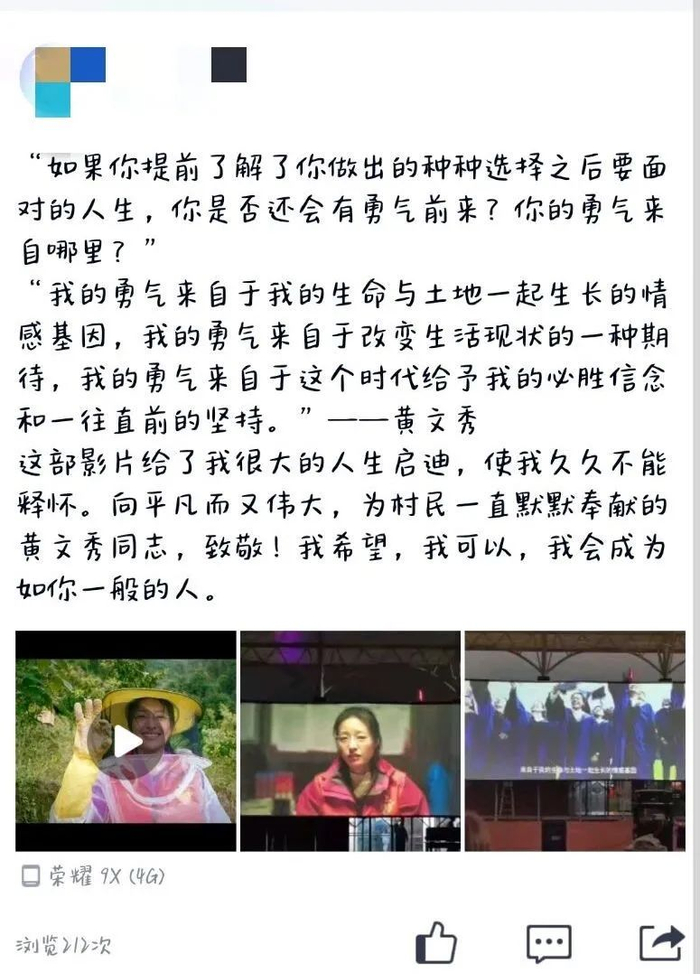 “如果你提前了解了你做出的种种选择之后要面
对的人生，你是否还会有勇气前来？你的勇气来
自哪里？”
“我的勇气来自于我的生命与土地一起生长的情
感基因，我的勇气来自于改变生活现状的一种期
待，我的勇气来自于这个时代给予我的必胜信念
和一往直前的坚持。”——黄文秀
这部影片给了我很大的人生启迪，使我久久不能
释怀。向平凡而又伟大，为村民一直默默奉献的
黄文秀同志，致敬！我希望，我可以，我会成为
如你一般的人。
来自于我的生命与土地一起生长的情感基因
荣耀 9X (4G)
浏览212次